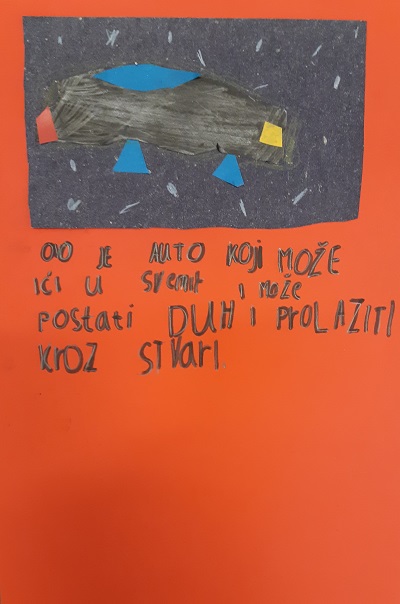 OVO JE AUTO KOJI MOŽE
IĆI U SVEMIR I MOŽE
POSTATI DUH I PROLAZITI
KROZ STVARI.